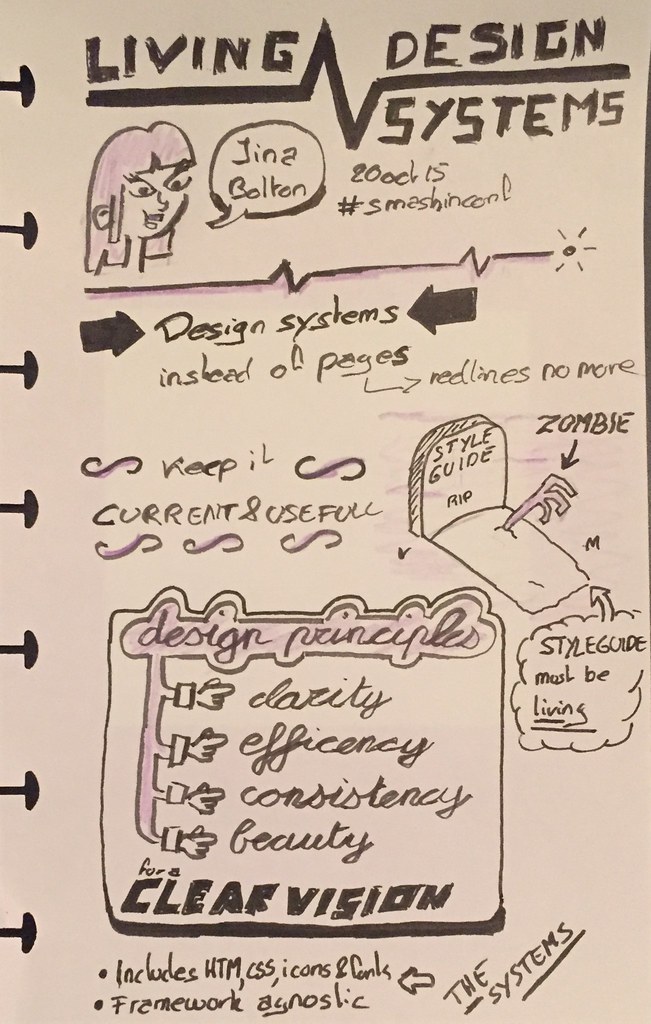 LIVING DESIGN
SYSTEMS
Jina
Bolton
20oct15
#smashinconf
Design systems
instead of pages
redlines no more
Keep it
CURRENT & USEFULL
ZOMBIE
STYLE
GUIDE
RIP
STYLEGUIDE
must be
living
design principles
clarity
efficency
consistency
beauty
for a
CLEAR VISION
• Includes HTM, CSS, icons & fonts
• Framework agnostic
THE
SYSTEMS